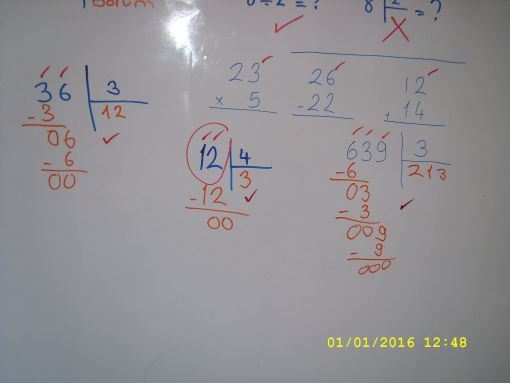 Bölüm
6 ÷ 2 = ?
8 2 = ?
36 3
- 3 12
06
- 6
00
23
x 5
26
- 22
12
+ 14
12 4
- 12 3
00
639 3
- 6 213
03
- 3
009
- 9
000
01/01/2016 12:48